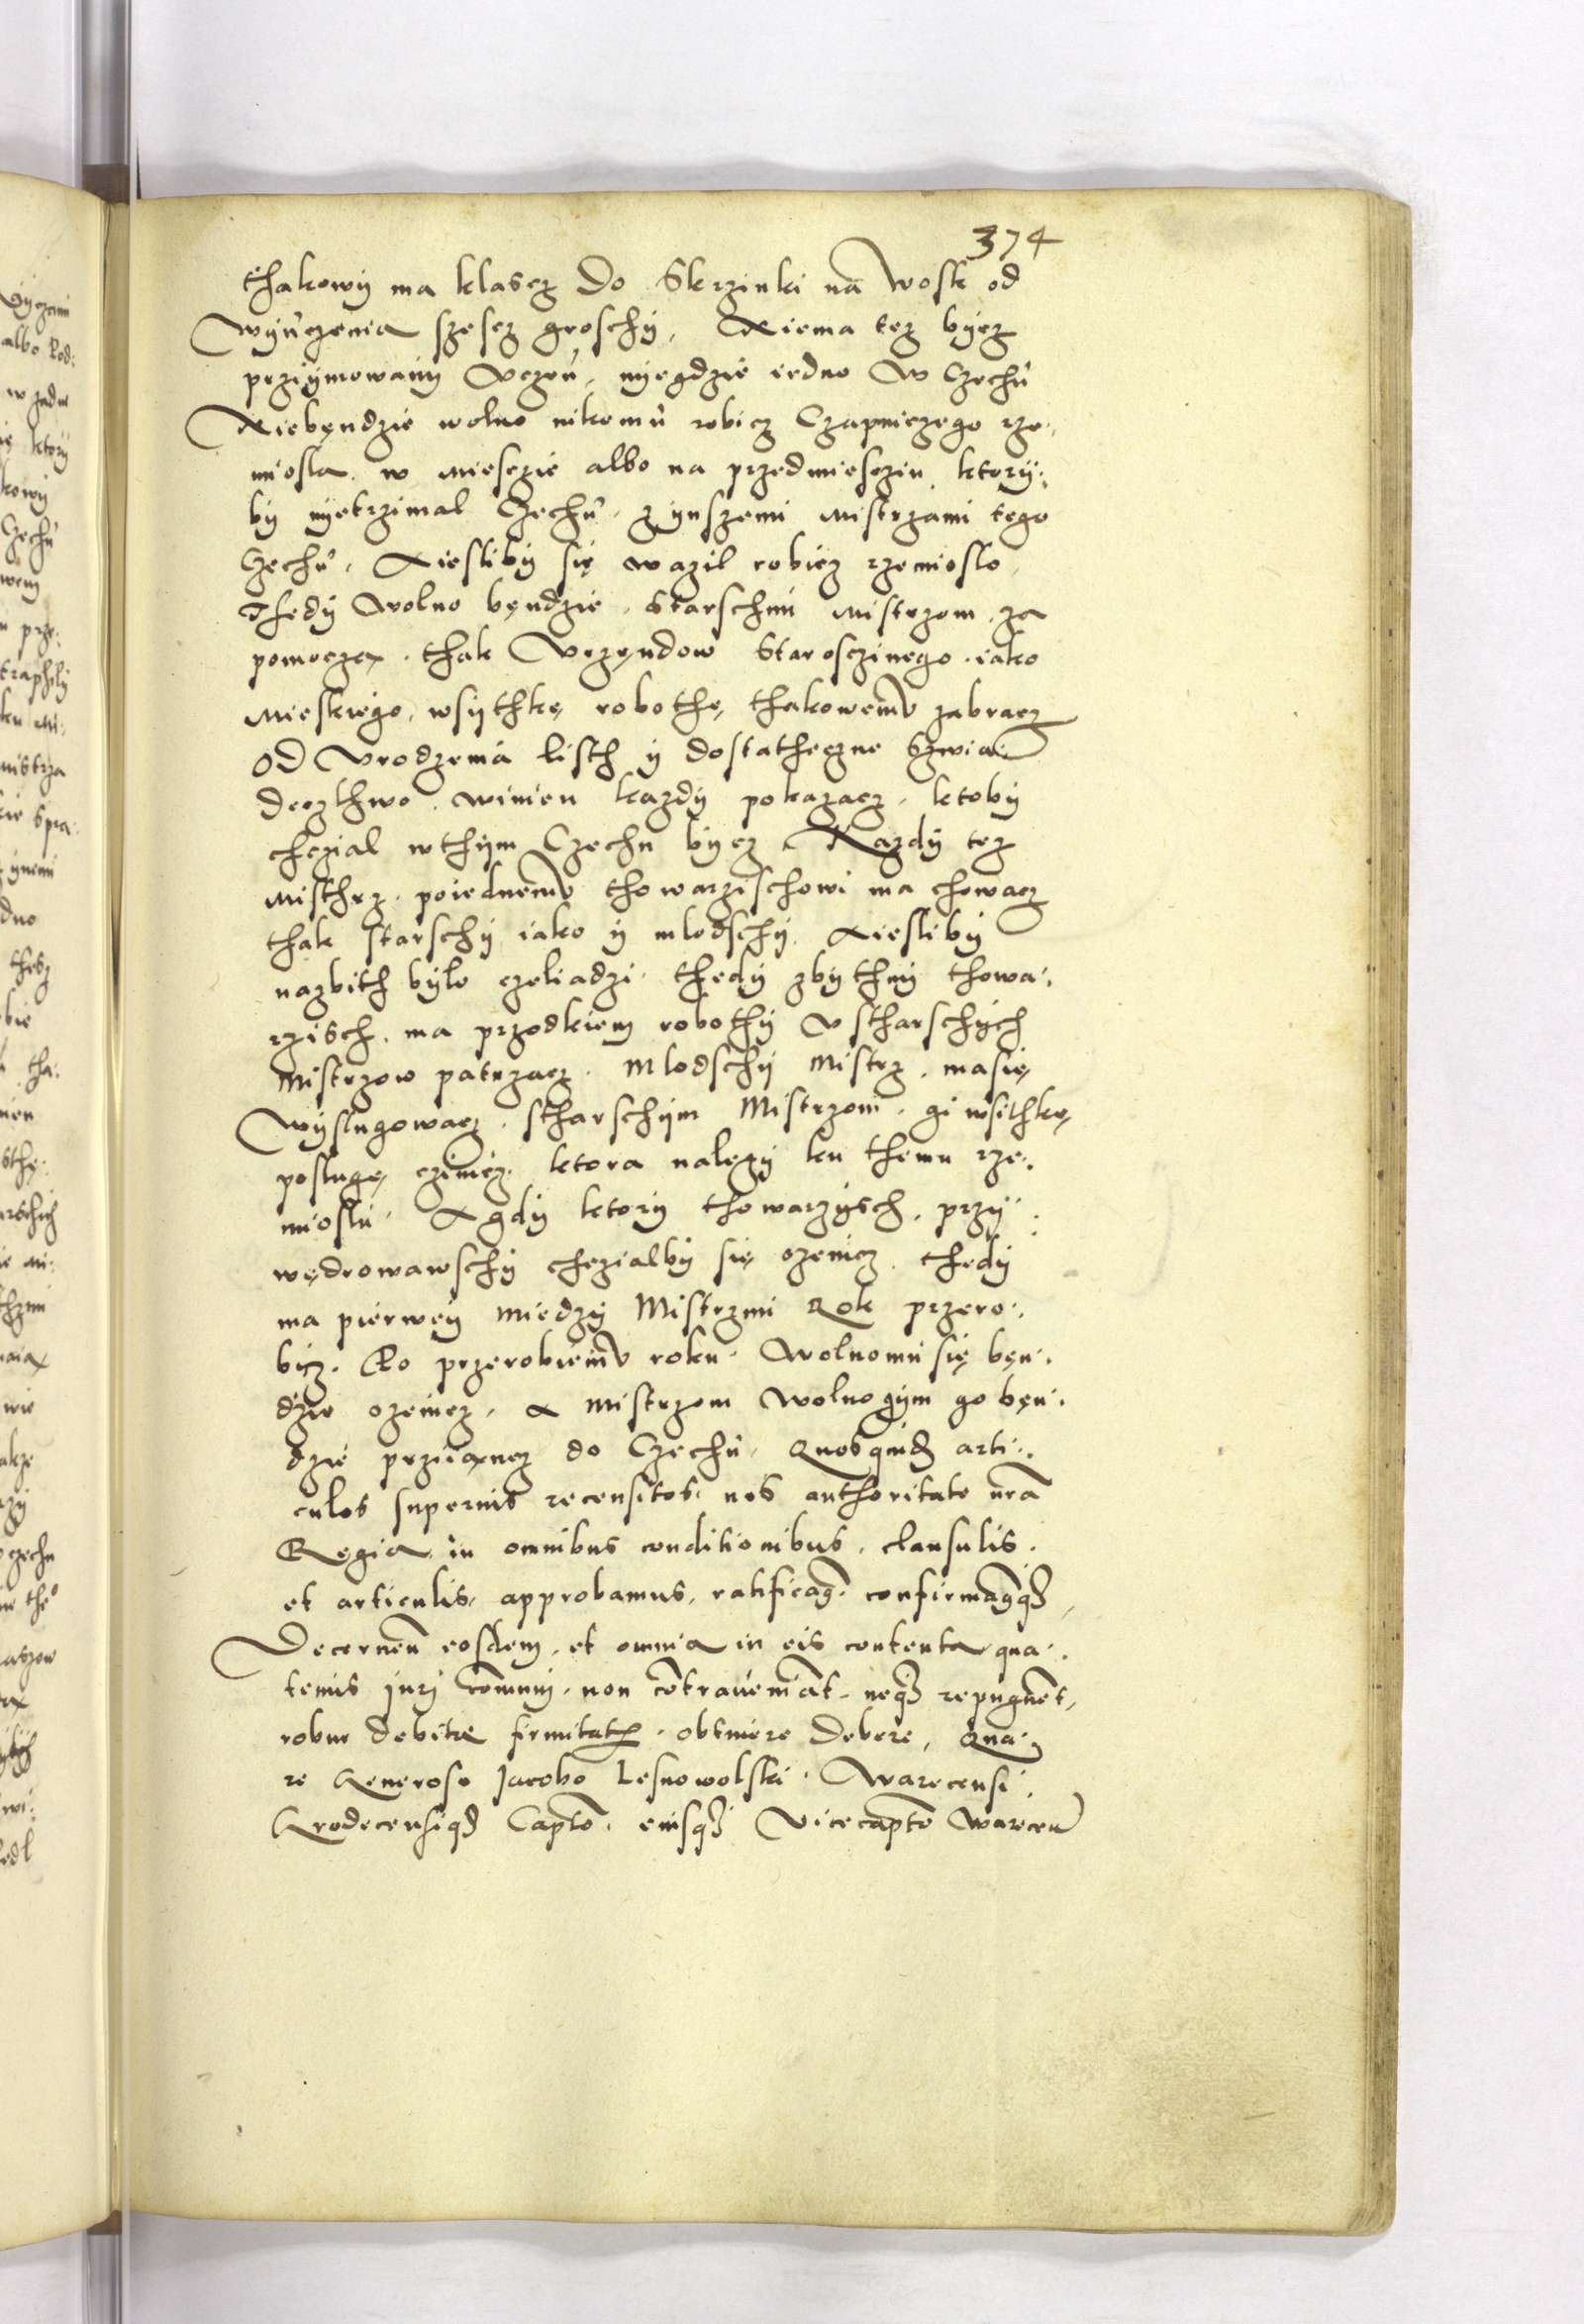 374
thakowÿ ma klascz do Skrzinki na Wosk od
wÿuczenia szescz groschÿ, Niema tez bÿcz
prziÿmowanÿ Uczen, nÿegdzie iedno W Czechu
Niebęndzie wolno nikomu robicz Czapniczego rze„
miosla w miesczie albo na przedmiescziu, ktorÿ„
bÿ nÿetrzimal Czechu, z ÿnszemi mistrzami tego
Czechu, A iesliby się wazil robicz rzemioslo,
Thedÿ Wolno bęndzie Starschim mistrzom, za
pomoczą, thak Urzęndow Starosczinego, iako
Mieskiego, wsÿthkę robothę, thakowemu zabracz
Od Urodzenia listh ÿ dostatheczne Szwia„
decztwo, winien kazdÿ pokazacz, ktobÿ
chczial wthÿm Czechu bÿcz, Kazdÿ tez
misthrz, poiednemu thowarzischowi ma chowacz
thak starschÿ iako ÿ mlodschÿ, A iesliby
nazbith bÿlo czeliadzi, thedÿ zbÿthnÿ thowa„
rzisch, ma przodkiem robothÿ U stharschÿch
Mistrzow patrzacz, Mlodschÿ Mistrz, masię
wÿslugowacz, stharschÿm Mistrzom, gi wsithkę
poslugę czinicz, ktora nalezÿ ku themu rze„
mioslu, A gdÿ ktorÿ thowarzÿsch, przÿ„
wędrowawschÿ chczialbÿ się ozenicz, thedÿ
ma pierweÿ miedzÿ Mistrzmi Rok przero„
bicz. Po przerobieniu roku, Wolnomu się bęn„
dzie ozenicz, A mistrzom Wolnogÿm go bęn„
dzie prziiąncz do Czechu, Quosquidem arti„
culos superius recensitos, nos authoritate nra
Regia, in omnibus conditionibus, clausulis,
et articulis, approbamus, ratificamus, confirmamusque,
Decernen eosdem, et omnia in eis contenta qua„
tenus Juri communi, non contraveniant, neque repugnent,
robur debitae firmitatis, obtinere debere, Qua„
re Generoso Jacobo Lesnowolski, Warecensi
Grodecensique Capto, eiusque Vicecapto Warecen